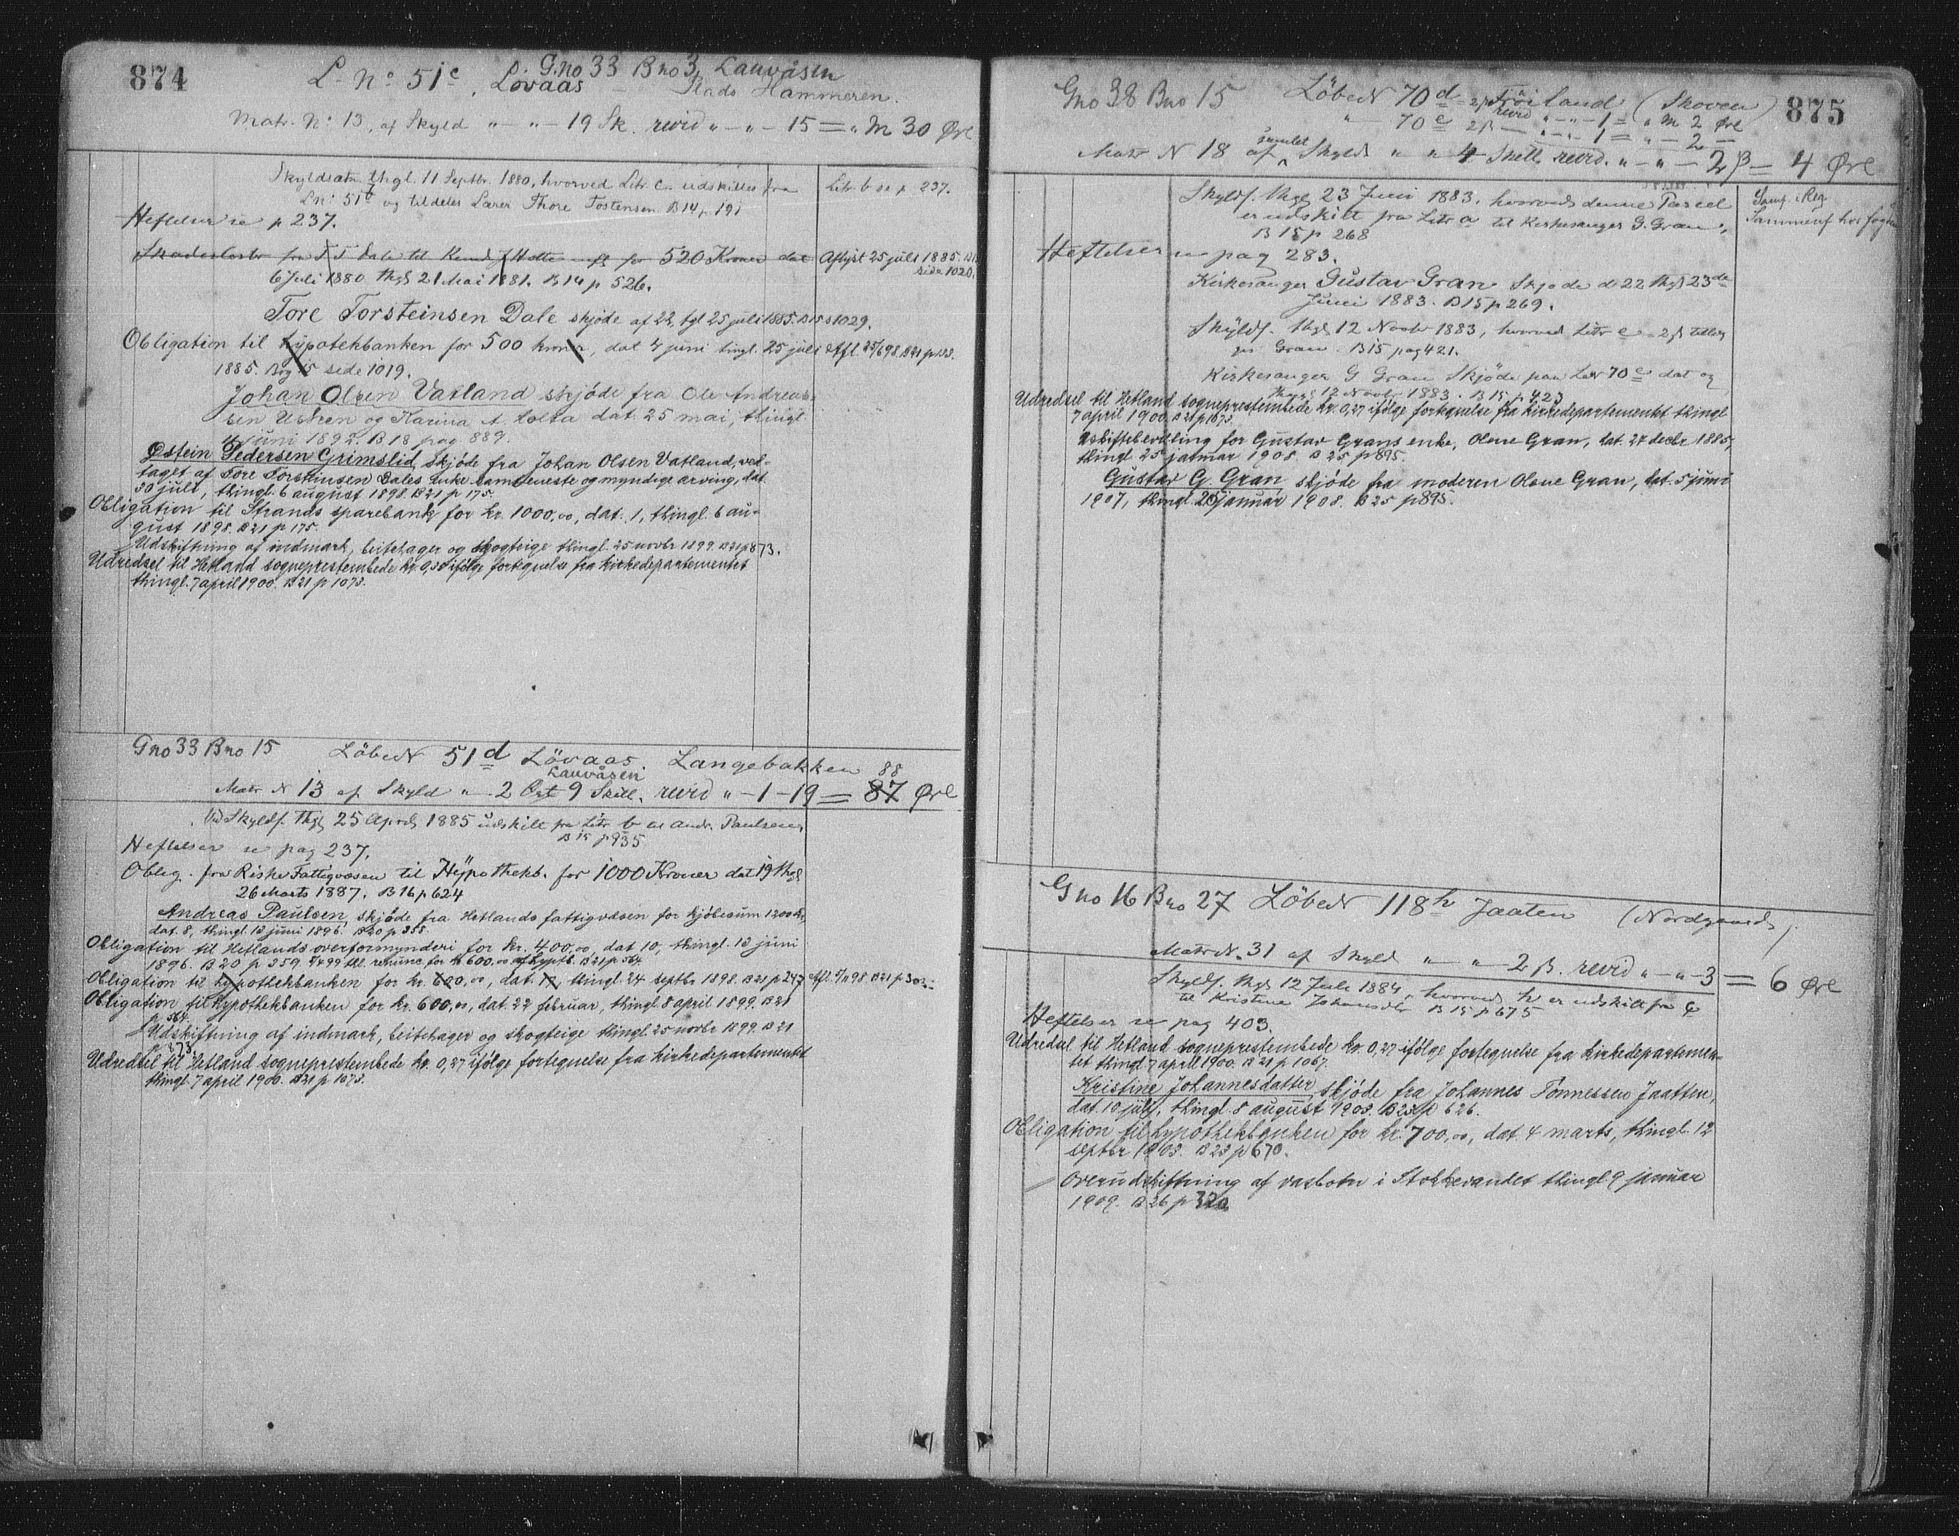 874
G.no 33 Bno 3, Lauvåsen
L. No 51c, Lövaas – Plads Hammeren.
Matr. No 13, af Skyld " – " – 19 Sk. revid " – " – 15 = " M 30 Øre
Skyldsætn. thgl. 11 Septbr. 1880, hvorved Litr c. udskilles fra
Lno 51b og tildeles Lærer Thore Tostensen. B14 p. 191
Litr. b se p 237.
Heftelser se p 237.
Skadesløsbr fra T T Dale til Kemd. J Holte for 520 Kroner dat
6 juli 1880 thgl 21 Mai 1881. B14 p 526.
Aflyst 25 juli 1885. B15
side 1020.
Tore Torsteinsen Dale skjøde af 22, tgl 25 juli 1885. B15 s 1029.
Obligation til hypotekbanken for 500 kroner, dat 4 juni tingl. 25 juli
1885. Bog 15 side 1019.
Afl. 25/6 98. B21 p 133.
Johan Olsen Vatland skjöde fra Ole Andreas-
sen Usken og Karina A. Holta dat. 25 mai, thingl.
4 juni 1892. B18 pag 889.
Østein Pedersen Grimslid, skjöde fra Johan Olsen Vatland, ved-
taget af Tore Torsteinsen Dales enke samt eneste og myndige arving, dat.
30 juli, thingl. 6 august 1898. B21 p 175.
Obligation til Strands sparebank for kr. 1000,00, dat. 1, thingl. 6 au-
gust 1898. B21 p 175.
Udskiftning af indmark, beitehager og skogteige thingl. 25 novbr 1899. B21 p 873.
Udredsel til Hetland sogneprestembede kr. 0,30 ifölge fortegnelse fra kirkedepartementet
thingl. 7 april 1900. B21 p 1073.
Gno 33 Bno 15 LöbeN 51d Lövaas. Langebakken
Lauvåsen 88
Matr N 13 af Skyld " – 2 Ort 9 Skill. revid " – 1 – 19 = 87 Øre
Ved Skyldf. thgl 25 April 1885 udskilt fra Litr b til Andr. Paulsen
B15 p 935
Heftelser se pag 237.
Oblig. fra Riska Fattigvæsen til Hypothekb. for 1000 Kroner dat 19 thgl
26 Marts 1887. B16 p 624
Andreas Paulsen, skjöde fra Hetlands fattigvæsen for kjöbesum 1200 kr,
dat. 8, thingl. 13 juni 1896. B20 p 358
Obligation til Hetlands overformynderi for kr. 400,00, dat 10, thingl. 13 juni
1896. B20 p 359. 8/4 99 till. renunc. for kr 600,00 af hypthb. B21 p 564
Obligation til hypothekbanken for kr. 600,00, dat. 17, thingl. 24 septbr 1898. B21 p 247
Obligation til hypothekbanken for kr. 600,00, dat. 22 februar, thingl. 8 april 1899. B21
p 564.
Udskiftning af indmark, beitehager og skogteige thingl. 25 novbr 1899. B21
p 873.
Udredsel til Hetland sogneprestembede kr. 0,27 ifölge fortegnelse fra kirkedepartementet
thingl. 7 april 1900. B21 p 1073.
875
Gno 38 Bno 15 LöbeN 70d Fröiland (Skoven)
" 70e 2ß – " – " 1 = " – 2 –
Matr N 18 af gamlet Skyld " " 4 Skill. revid. " – " – 2 ß = 4 Øre
Skyldf. thgl 23 Juni 1883, hvorved denne Parcel
er udskilt fra Litr a til Kirkesanger G. Gran
B15 p 268
Heftelser se pag 283.
Kirkesanger Gustav Gran Skjøde d 22 thgl 23de
Juni 1883. B15 p 269.
Skyldf. thgl 12 Novbr 1883, hvorved Litr e – 2ß tillæg-
ges Gran. B15 pag 421.
Kirkesanger G Gran Skjøde paa LN 70e dat og
thgl 12 Novbr 1883. B15 p 423
Udredsel til Hetland sogneprestembede kr. 0,27 ifölge fortegnelse fra kirkedepartementet thingl
7 april 1900. B21 p 1073.
Uskiftebevilling for Gustav Grans enke, Olene Gran, dat. 24 decbr 1885,
thingl 25 januar 1908. B25 p 895.
Gustav G. Gran skjöde fra moderen Olene Gran, dat. 5 juni
1907, thingl. 25 januar 1908. B25 p 895.
Gno 16 Bno 27 LöbeN 118h Jaaten (Nordgaard)
Matr N. 31 af Skyld " – " – 2 ß. revid " – " – 3 = 6 Øre
Skyldf. thgl 12 Juli 1884, hvorved h er udskilt fra c
til Kristine Johansdtr B15 p 675
Heftelser se pag 403.
Udredsel til Hetland sogneprestembede kr 0,27 ifölge fortegnelse fra kirkedepartemen-
tet thingl. 7 april 1900. B21 p 1067.
Kristine Johannesdatter, skjöde fra Johannes Tönnessen Jaatten,
dat. 10 juli, thingl. 8 august 1903. B23 p 626.
Obligation til hypothekbanken for kr. 700,00, dat. 4 marts, thingl. 12
septbr 1903. B23 p 670.
Overudskiftning af vasbotn i Stokkevandet thingl 9 januar
1909. B26 p 320